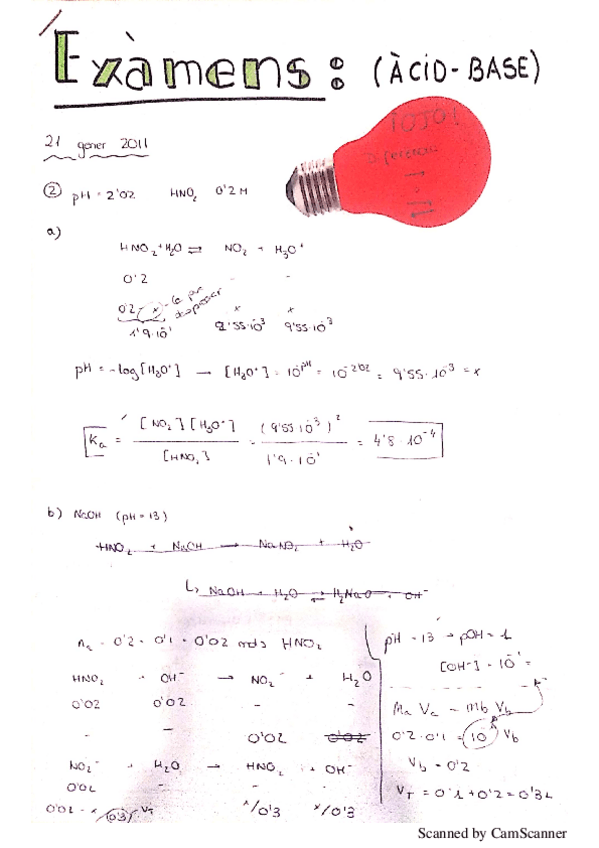 Exàmens: (ÀCID-BASE)
21 gener 2011
② pH = 2'02 HNO₂ 0'2 M
a)
HNO₂ + H₂O ⇌ NO₂ + H₃O⁺
0'2 - -
0'2 - x x x
1'9·10⁻¹ 9'55·10⁻³ 9'55·10⁻³
pH = -log[H₃O⁺] → [H₃O⁺] = 10^-pH = 10^-2'02 = 9'55·10⁻³ = x
Ka = [NO₂][H₃O⁺] / [HNO₂] = (9'55·10⁻³)² / 1'9·10⁻¹ = 4'8·10⁻⁴
b) NaOH (pH = 13)
HNO₂ + NaOH → NaNO₂ + H₂O
↳ NaOH + H₂O ⇌ H₂NaO + OH⁻
na = 0'2 · 0'1 = 0'02 mols HNO₂
HNO₂ + OH⁻ → NO₂⁻ + H₂O
0'02 0'02 - -
- - 0'02 0'02
NO₂⁻ + H₂O → HNO₂ + OH⁻
0'02 - -
0'02 - x /0'3 VT x/0'3 x/0'3
pH = 13 → pOH = 1
[OH⁻] = 10⁻¹ =
Ma Va = Mb Vb
0'2 · 0'1 = 10⁻¹ Vb
Vb = 0'2
VT = 0'1 + 0'2 = 0'3L
Scanned by CamScanner